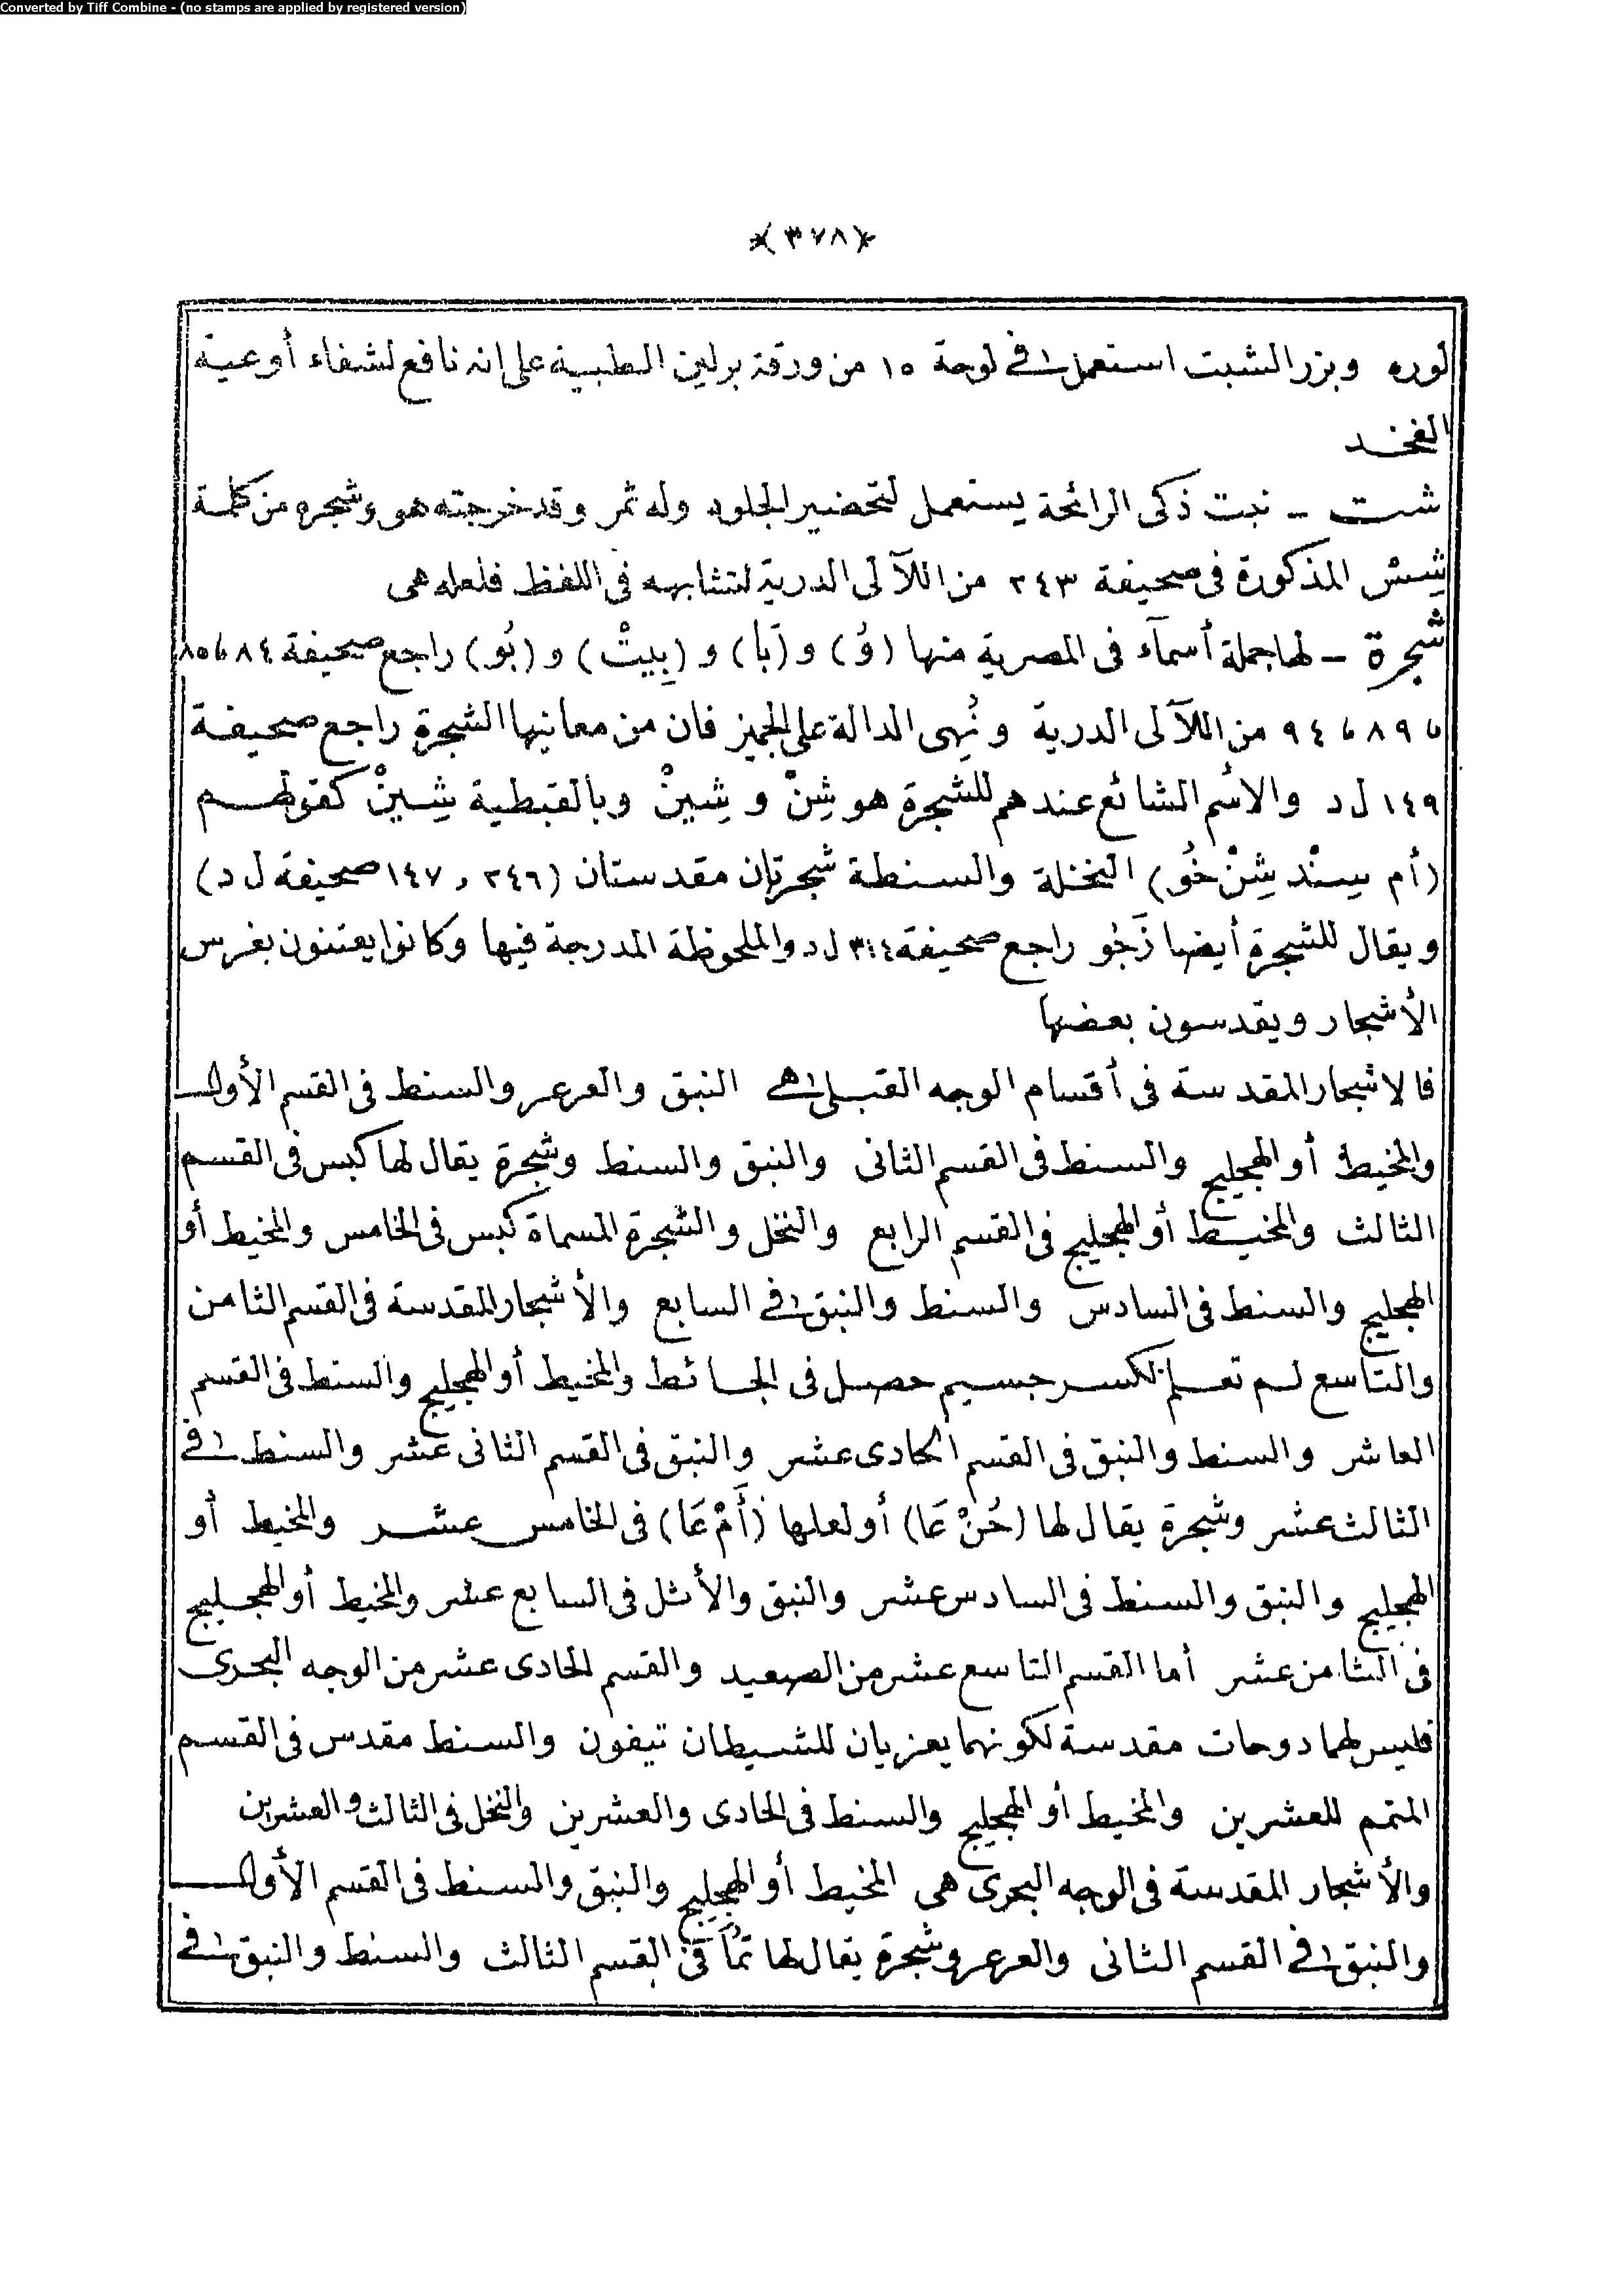 Converted by Tiff Combine - (no stamps are applied by registered version)
*(٣٧٨)*
لوره وبزر الشبت استعمل فى لوحة ١٥ من ورقة برلين الطبية على انه نافع لشفاء أوعية
الفخد
شت – نبت ذكى الرائحة يستعمل لتحضير الجلود وله ثمر وقد خرجته هو وشجره من كلمة
شِسْ المذكورة فى صحيفة ٢٤٣ من اللآلى الدرية لتشابهه فى اللفظ فلعله هى
شجرة – لها جملة أسمآء فى المصرية منها (وُ) و (بَا) و (بِيتْ) و (بُو) راجع صحيفة ٨٤ و ٨٥
و ٨٩ و ٩٤ من اللآلى الدرية ونُهى الدالة على الجميز فان من معانيها الشجرة راجع صحيفة
١٤٩ ل د والاسم الشائع عندهم للشجرة هو شِنْ و شِينْ وبالقبطية شِينْ كقولهم
(أم سِنْد شِنْ خُو) النخلة والسنطة شجرتان مقدستان (٢٤٦ و ١٤٧ صحيفة ل د)
ويقال للشجرة أيضا زَخُو راجع صحيفة ٣١٤ ل د والملحوظة المدرجة فيها وكانوا يعتنون بغرس
الأشجار ويقدسون بعضها
فالاشجار المقدسة فى أقسام الوجه القبلى هى النبق والعرعر والسنط فى القسم الأول
والمخيط أو الهجليج والسنط فى القسم الثانى والنبق والسنط وشجرة يقال لها كبس فى القسم
الثالث والمخيط أو الهجليج فى القسم الرابع والنخل والشجرة المسماة كبس فى الخامس والمخيط أو
الهجليج والسنط فى السادس والسنط والنبق فى السابع والأشجار المقدسة فى القسم الثامن
والتاسع لم تعلم لكسر جسيم حصل فى الحائط والمخيط أو الهجليج والسنط فى القسم
العاشر والسنط والنبق فى القسم الحادى عشر والنبق فى القسم الثانى عشر والسنط فى
الثالث عشر وشجرة يقال لها (حُنْ عَا) أو لعلها (أَمْ عَا) فى الخامس عشر والمخيط أو
الهجليج والنبق والسنط فى السادس عشر والنبق والأثل فى السابع عشر والمخيط أو الهجليج
فى الثامن عشر أما القسم التاسع عشر من الصعيد والقسم الحادى عشر من الوجه البحرى
فليس لهما دوحات مقدسة لكونهما يعزيان للشيطان تيفون والسنط مقدس فى القسم
المتمم للعشرين والمخيط أو الهجليج والسنط فى الحادى والعشرين والنخل فى الثالث والعشرين
والأشجار المقدسة فى الوجه البحرى هى المخيط أو الهجليج والنبق والسنط فى القسم الأول
والنبق فى القسم الثانى والعرعر وشجرة يقال لها فى القسم الثالث والسنط والنبق فى